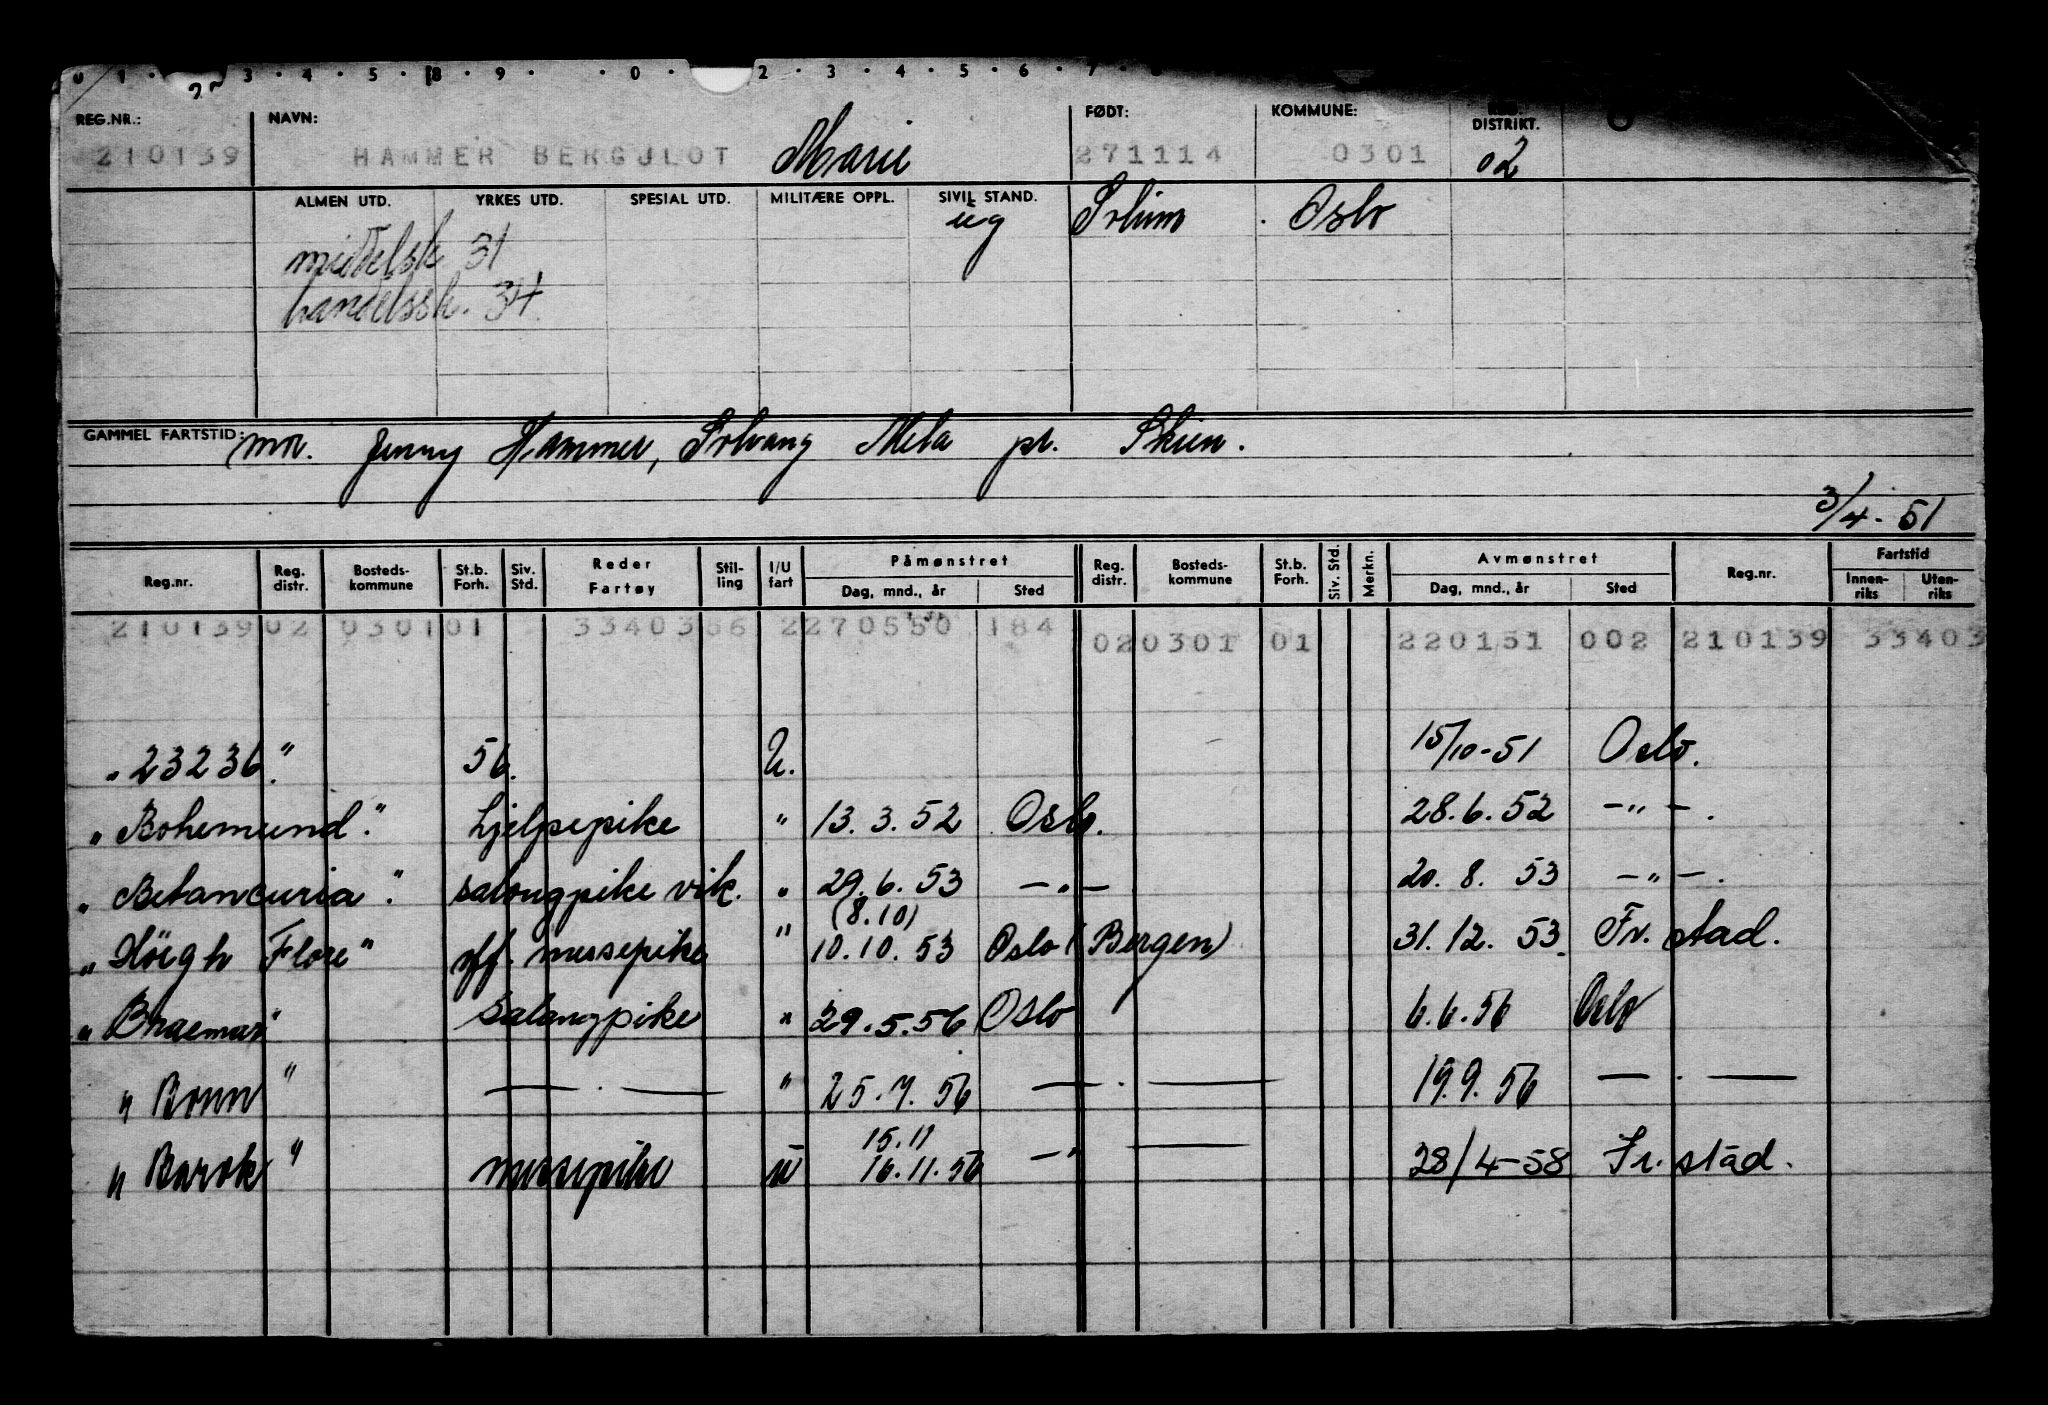 0 1 · 2 3 · 4 · 5 · 8 · 9 · · 0 · 2 · 3 · 4 · 5 · 6 · 7 ·
REG.NR.: NAVN: FØDT: KOMMUNE: REG. DISTRIKT.
210139 HAMMER BERGJLOT Marie 271114 0301 02
ALMEN UTD. YRKES UTD. SPESIAL UTD. MILITÆRE OPPL. SIVIL STAND.
ug Solum Oslo
middelsk 31
handelssk. 34
GAMMEL FARTSTID: mor. Jenny Hammer, Solvang Mela pr. Skien.
3/4-51
Påmønstret Avmønstret Fartstid
Reg.nr. Reg. distr. Bosteds-kommune St.b. Forh. Siv. Std. Reder Fartøy Stil-ling I/U fart Dag, mnd., år Sted Reg. distr. Bosteds-kommune St.b. Forh. Siv. Std. Merkn. Dag, mnd., år Sted Reg.nr. Innen-riks Uten-riks
210139 02 0301 01 33403 56 2 270550 184 02 0301 01 220151 002 210139 33403
"23236" 56. U. 15/10-51 Oslo.
"Bohemund" hjelpepike " 13.3.52 Oslo. 28.6.52 -"-.
"Betancuria" salongpike vik. " 29.6.53 -"- 20.8.53 -"-.
(8.10)
"Höegh Flore" off. messepike " 10.10.53 Oslo (Bergen) 31.12.53 Fr.stad.
"Braemar" salongpike " 29.5.56 Oslo 6.6.56 Oslo
"Bonn" — . — " 25.7.56 — . — 19.9.56 — . —
15.11
"Barok" messepike u 16.11.56 —"— 28/4-58 Fr.stad.